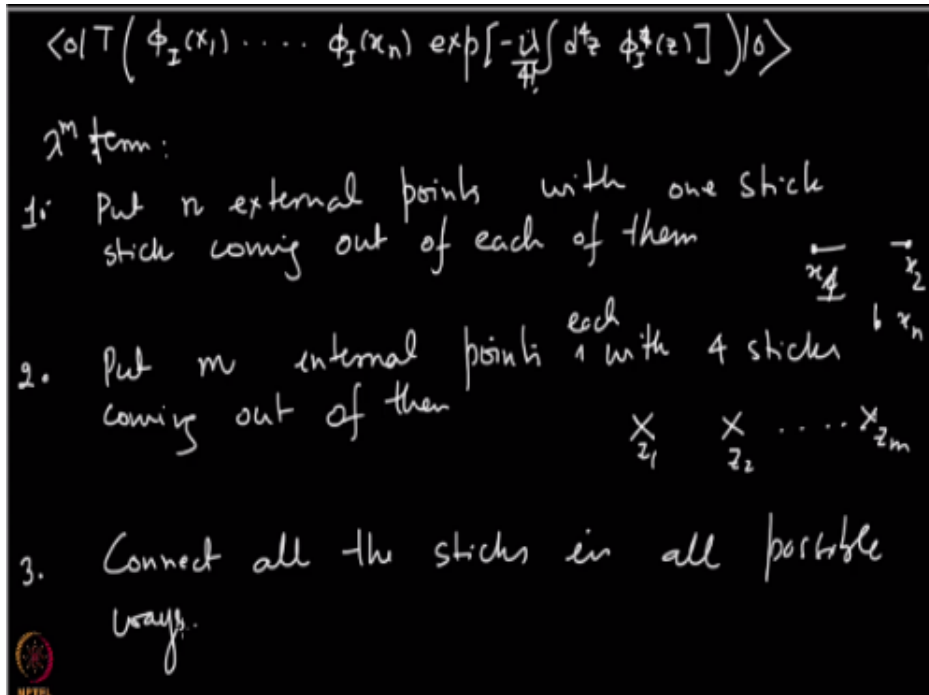 <0|T(ϕ_I(x₁) ..... ϕ_I(xₙ) exp[-iλ/4! ∫d⁴z ϕ_I⁴(z)])|0>
λ^m term:
1. Put n external points with one stick
stick coming out of each of them
x₁ x₂
xₙ
each
2. Put m internal points ∧ with 4 sticks
coming out of them
z₁ z₂ .... z_m
3. Connect all the sticks in all possible
ways.
NPTEL